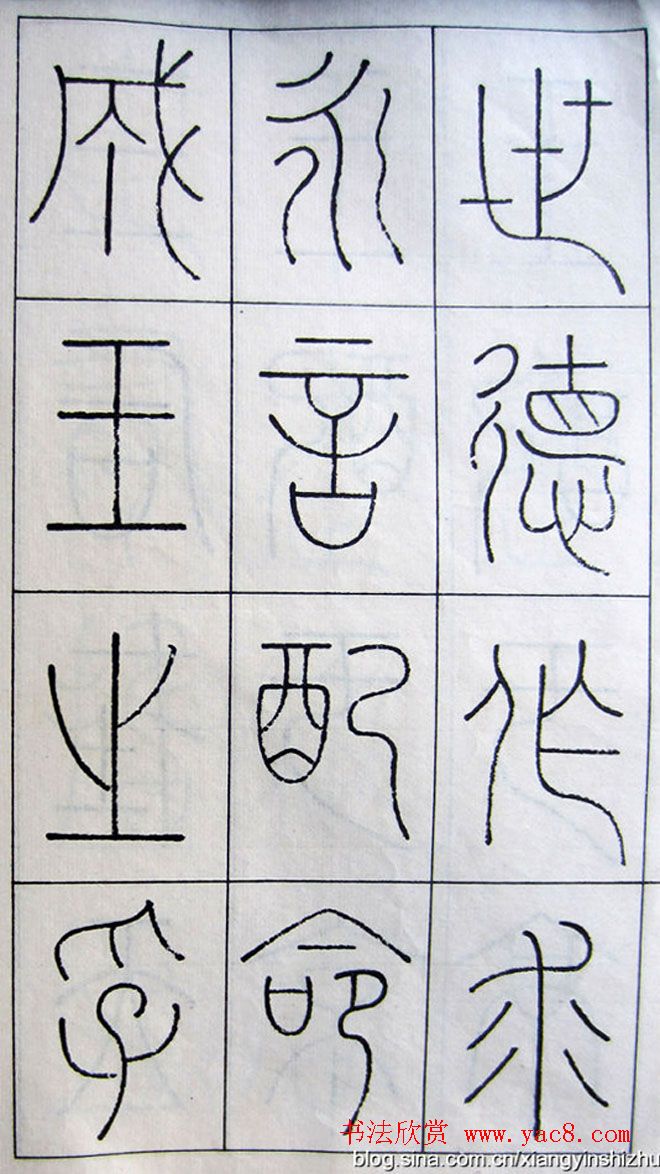 世德作求
永言配命
成王之孚
书法欣赏 www.yac8.com
blog.sina.com.cn/xiangyinshizhu